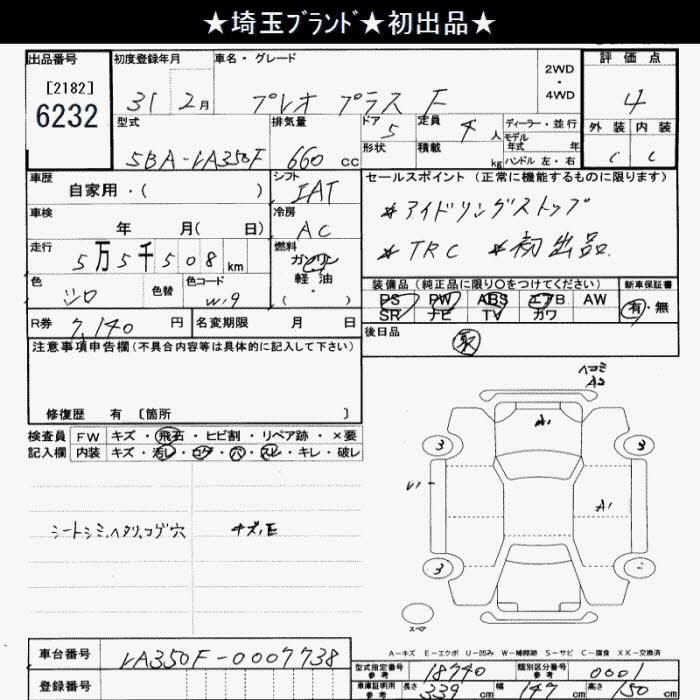 ★埼玉ﾌﾞﾗﾝﾄﾞ★初出品★
出品番号
[2182]
6232
初度登録年月
31 2月
車名・グレード
プレオ プラス F
2WD
・
4WD
評価点
4
外装 内装
C C
型式
5BA-LA350F
排気量
660 cc
ドア
5
定員
4 人
形状
積載
kg
ディーラー・並行
モデル
年式 年
ハンドル 左・右
車歴
自家用・( )
シフト
IAT
車検
年 月( 日)
冷房
AC
走行
5万5千508 km
燃料
ガソリン
軽油
・
( )
色
シロ
色替
色コード
W19
R券
7,140 円
名変期限 月 日
セールスポイント (正常に機能するものに限ります)
*アイドリングストップ
*TRC *初出品
装備品 (純正品に限り○をつけてください)
PS PW ABS エアB AW
SR ナビ TV カワ
新車保証書
有・無
後日品
取
注意事項申告欄(不具合内容等は具体的に記入して下さい)
修復歴 有 〔箇所 〕
検査員
記入欄
FW キズ・飛石・ヒビ割・リペア跡・×要
内装 キズ・汚レ・コゲ・穴・スレ・キレ・破レ
シートシミ,ヘタリ,コゲ穴
キズ,E
ヘコミ
A2
A1
3
3
U1
A1
3
スペア
A-キズ E-エクボ U-凹み W-補修跡 S-サビ C-腐食 XX-交換済
車台番号
LA350F-0007738
登録番号
型式指定番号
参考
18740
類別区分番号
参考
0001
車庫証明用
参考
長さ 339 cm 幅 147 cm 高さ 150 cm